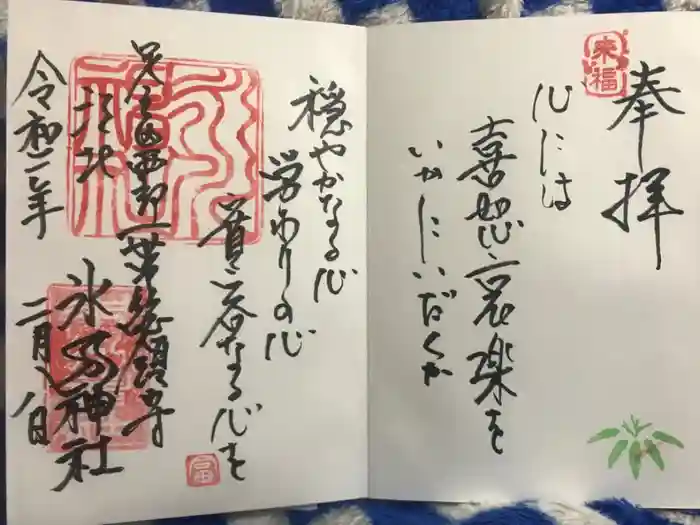 来福
奉拝
心には
喜怒哀楽を
いかにいだくか
穏やかなる心
労わりの心
寛容なる心を
足立西部一帯総鎮守
氷川神社
令和二年
二月八日